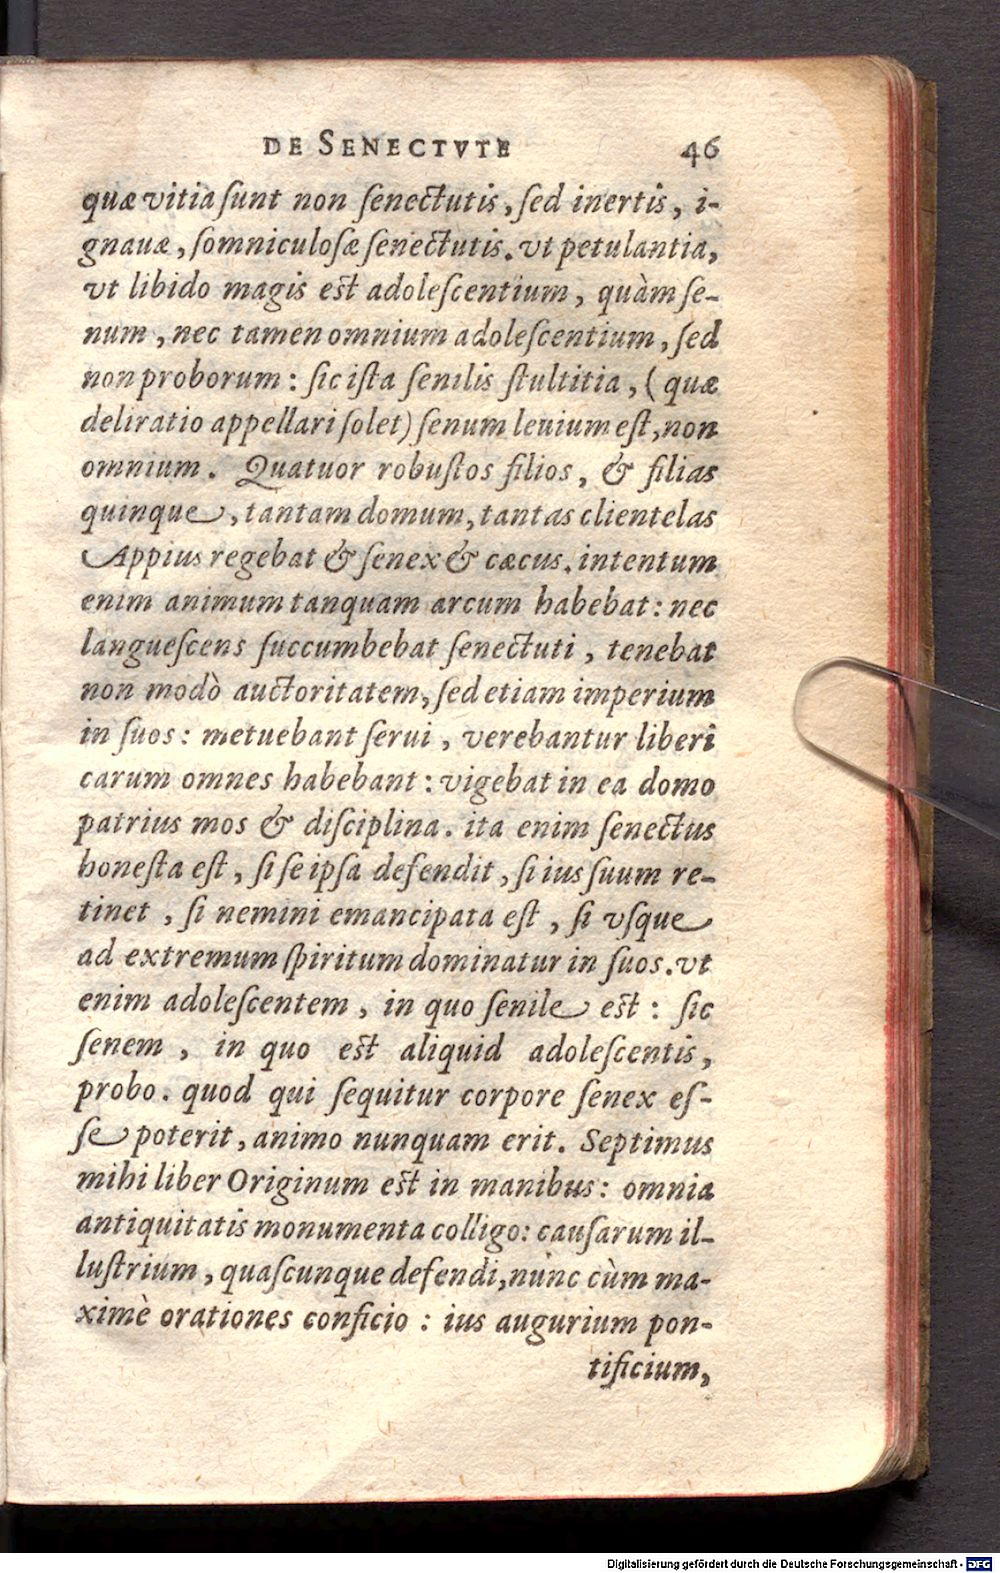 DE SENECTVTE 46
quæ vitia ſunt non ſenectutis, ſed inertis, i-
gnauæ, ſomniculoſæ ſenectutis. vt petulantia,
vt libido magis est adoleſcentium, quàm ſe-
num, nec tamen omnium adoleſcentium, ſed
non proborum: ſic iſta ſenilis ſtultitia, (quæ
deliratio appellari ſolet) ſenum leuium eſt, non
omnium. Quatuor robuſtos filios, & filias
quinque, tantam domum, tantas clientelas
Appius regebat & ſenex & cæcus. intentum
enim animum tanquam arcum habebat: nec
langueſcens ſuccumbebat ſenectuti, tenebat
non modò auctoritatem, ſed etiam imperium
in ſuos: metuebant ſerui, verebantur liberi
carum omnes habebant: vigebat in ea domo
patrius mos & diſciplina. ita enim ſenectus
honeſta eſt, ſi ſe ipſa defendit, ſi ius ſuum re-
tinet, ſi nemini emancipata eſt, ſi vſque
ad extremum ſpiritum dominatur in ſuos. vt
enim adoleſcentem, in quo ſenile est: ſic
ſenem, in quo est aliquid adoleſcentis,
probo. quod qui ſequitur corpore ſenex eſ-
ſe poterit, animo nunquam erit. Septimus
mihi liber Originum est in manibus: omnia
antiquitatis monumenta colligo: cauſarum il-
luſtrium, quaſcunque defendi, nunc cùm ma-
ximè orationes conficio: ius augurium pon-
tificium,
Digitalisierung gefördert durch die Deutsche Forschungsgemeinschaft - DFG